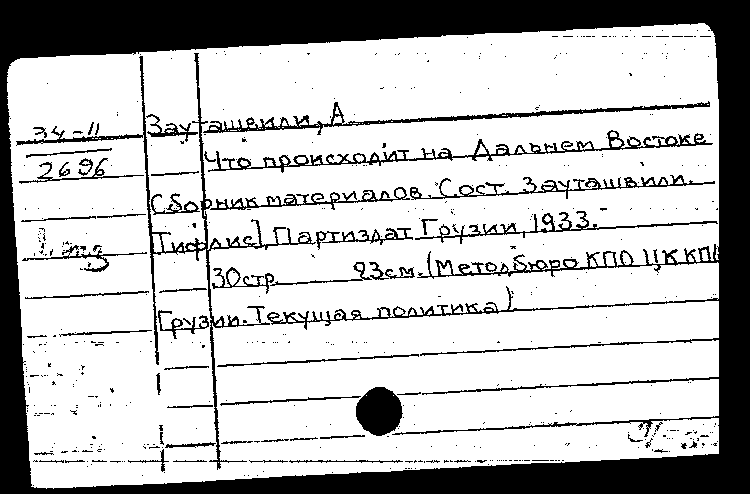 34-11
2696
1. экз
Зауташвили, А.
Что происходит на Дальнем Востоке
Сборник материалов. Сост. Зауташвили.
Тифлис], Партиздат Грузии, 1933.
30стр. 23см. (Методбюро КПО ЦК КП/
Грузии. Текущая политика)